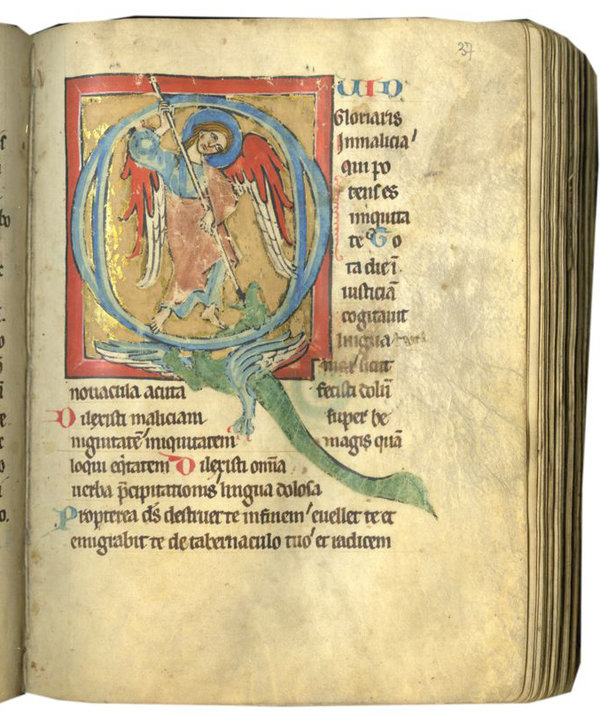 37
QUID
Gloriaris
Inmalicia
qui po
tens es
iniquita
te To
ta die ī
iusticiā
cogitauit
lingua
sicut
nouacula acuta fecisti dolū
Dilexisti maliciam super be
nignitatē iniquitatem magis quā
loqui eq̄tatem Dilexisti om̄ia
uerba p̄cipitationis lingua dolosa
Propterea d̄s destruet te infinem euellet te et
emigrabit te de tabernaculo tuo et radicem